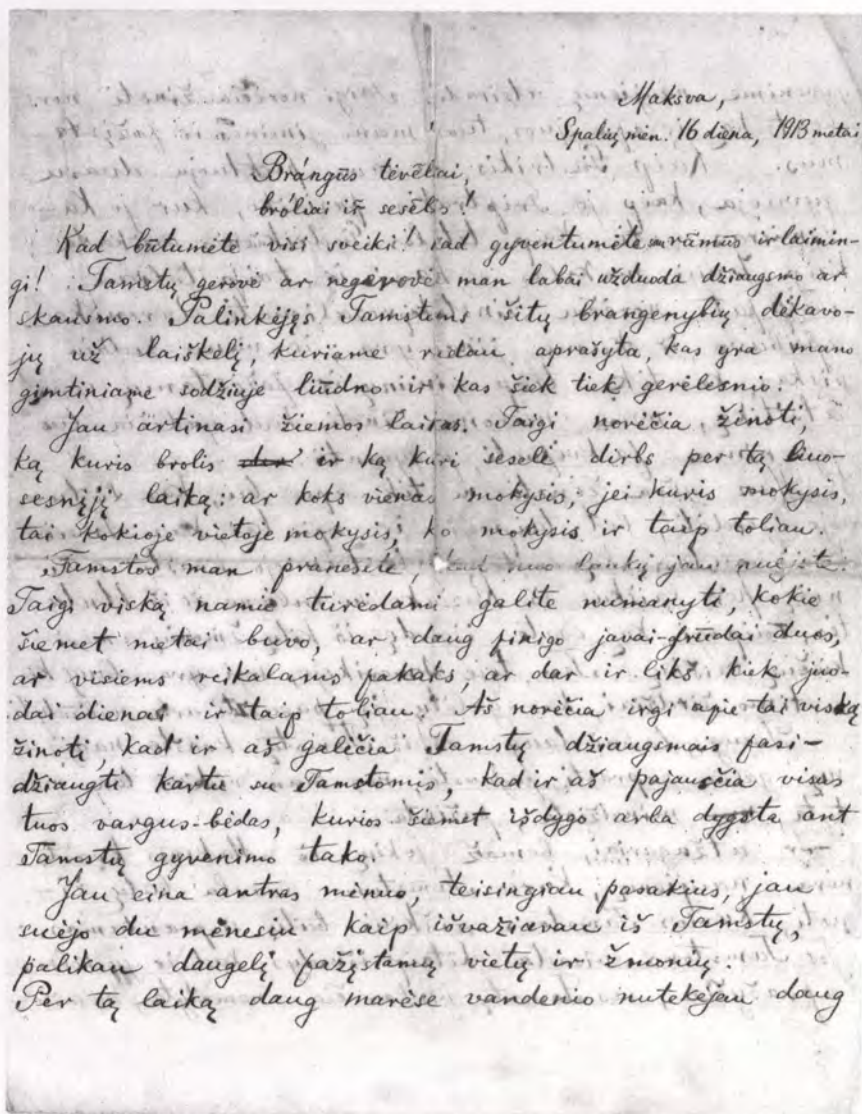 Maksva,
Spalių mėn. 16 diena, 1913 metai
Brángūs tėvėliai,
bróliai ir̃ sesėlės!
Kad būtumėte visi sveiki! kad gyventumėte ramūs ir laimin-
gi! Tamstų gerovė ar negerovė man labai užduoda džiaugsmo ar
skausmo. Palinkėjęs Tamstoms šitų brangenybių dėkavo-
ju už laiškelį, kuriame radau aprašyta, kas yra mano
gimtiniame sodžiuje liūdno ir kas šiek tiek gerėlesnio.
Jau artinasi žiemos laikas. Taigi norėčia žinoti,
ką kuris brolis ir ką kuri seselė dirbs per tą liuo-
sesnįjį laiką: ar koks vienas mokysis, jei kuris mokysis,
tai kokioje vietoje mokysis, ko mokysis ir taip toliau.
Tamstos man pranešėte, kad nuo laukų jau nuėjote.
Taigi viską namie turėdami galite numanyti, kokie
šiemet metai buvo, ar daug pinigo javai-grūdai duos,
ar visiems reikalams pakaks, ar dar ir liks kiek juo-
dai dienai ir taip toliau. Aš norėčia irgi apie tai viską
žinoti, kad ir aš galėčia Tamstų džiaugsmais pasi-
džiaugti kartu su Tamstomis, kad ir aš pajausčia visas
tuos vargus-bėdas, kurios šiemet išdygo arba dygsta ant
Tamstų gyvenimo tako.
Jau eina antras mėnuo, teisingiau pasakius, jau
suėjo du mėnesiu kaip išvažiavau iš Tamstų,
palikau daugelį pažįstamų vietų ir žmonių.
Per tą laiką daug marėse vandenio nutekėjau daug